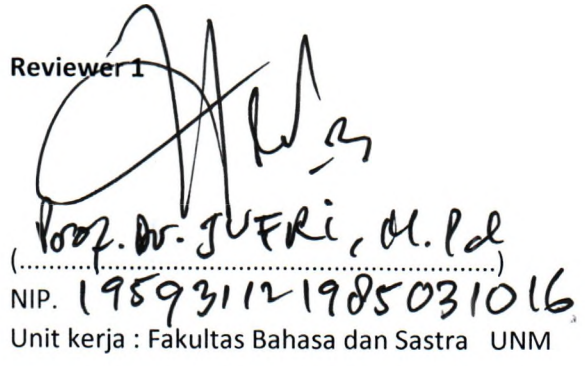 Reviewer 1
Prof. Dr. JUFRi, M.Pd
(.....................................................................)
NIP. 195931121985031016
Unit kerja : Fakultas Bahasa dan Sastra UNM